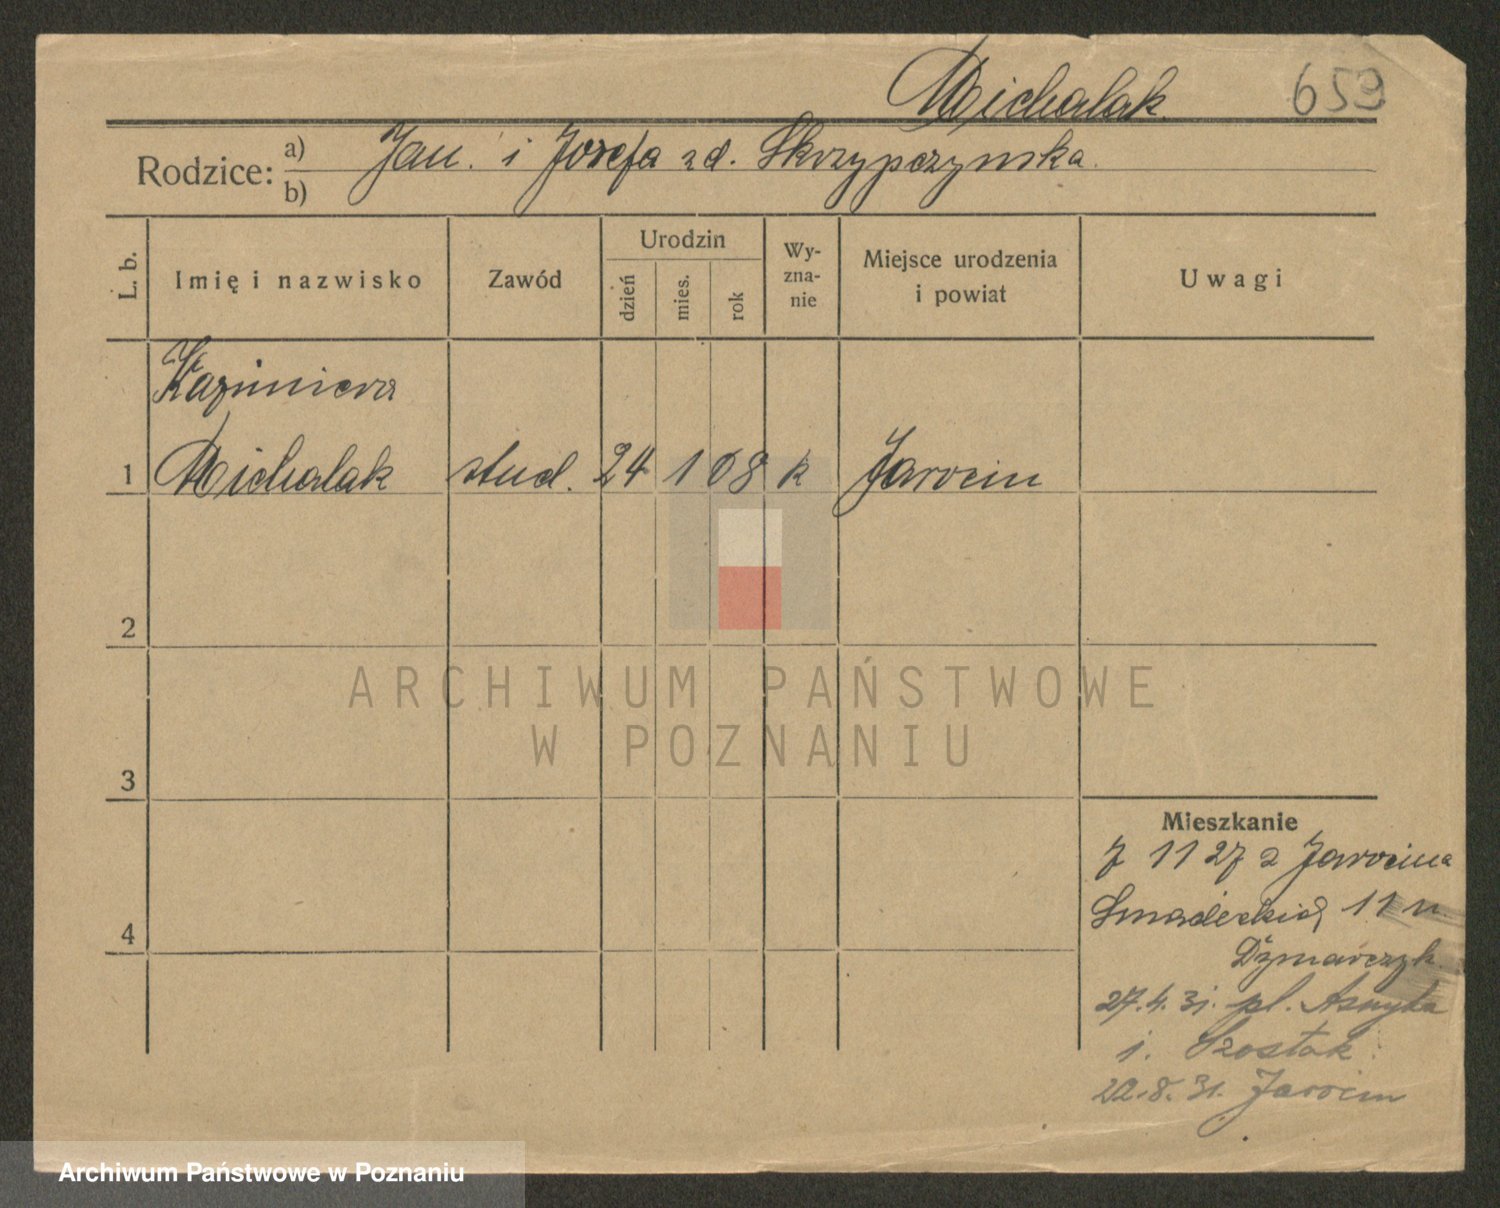 Michalak
659
Rodzice: a) Jan i Józefa zd. Skrzypczyńska
b)
L. b.
Imię i nazwisko
Zawód
Urodzin
dzień
mies.
rok
Wy-
zna-
nie
Miejsce urodzenia
i powiat
Uwagi
Kazimiera
1 Michalak stud. 24 1 08 k Jarocin
2
3
4
Mieszkanie
7 11 27 z Jarocina
Śniadeckich 11 u
27.4.31. pl. Asnyka
Szostak
22.8.31. Jarocin
ARCHIWUM PAŃSTWOWE
W POZNANIU
Archiwum Państwowe w Poznaniu